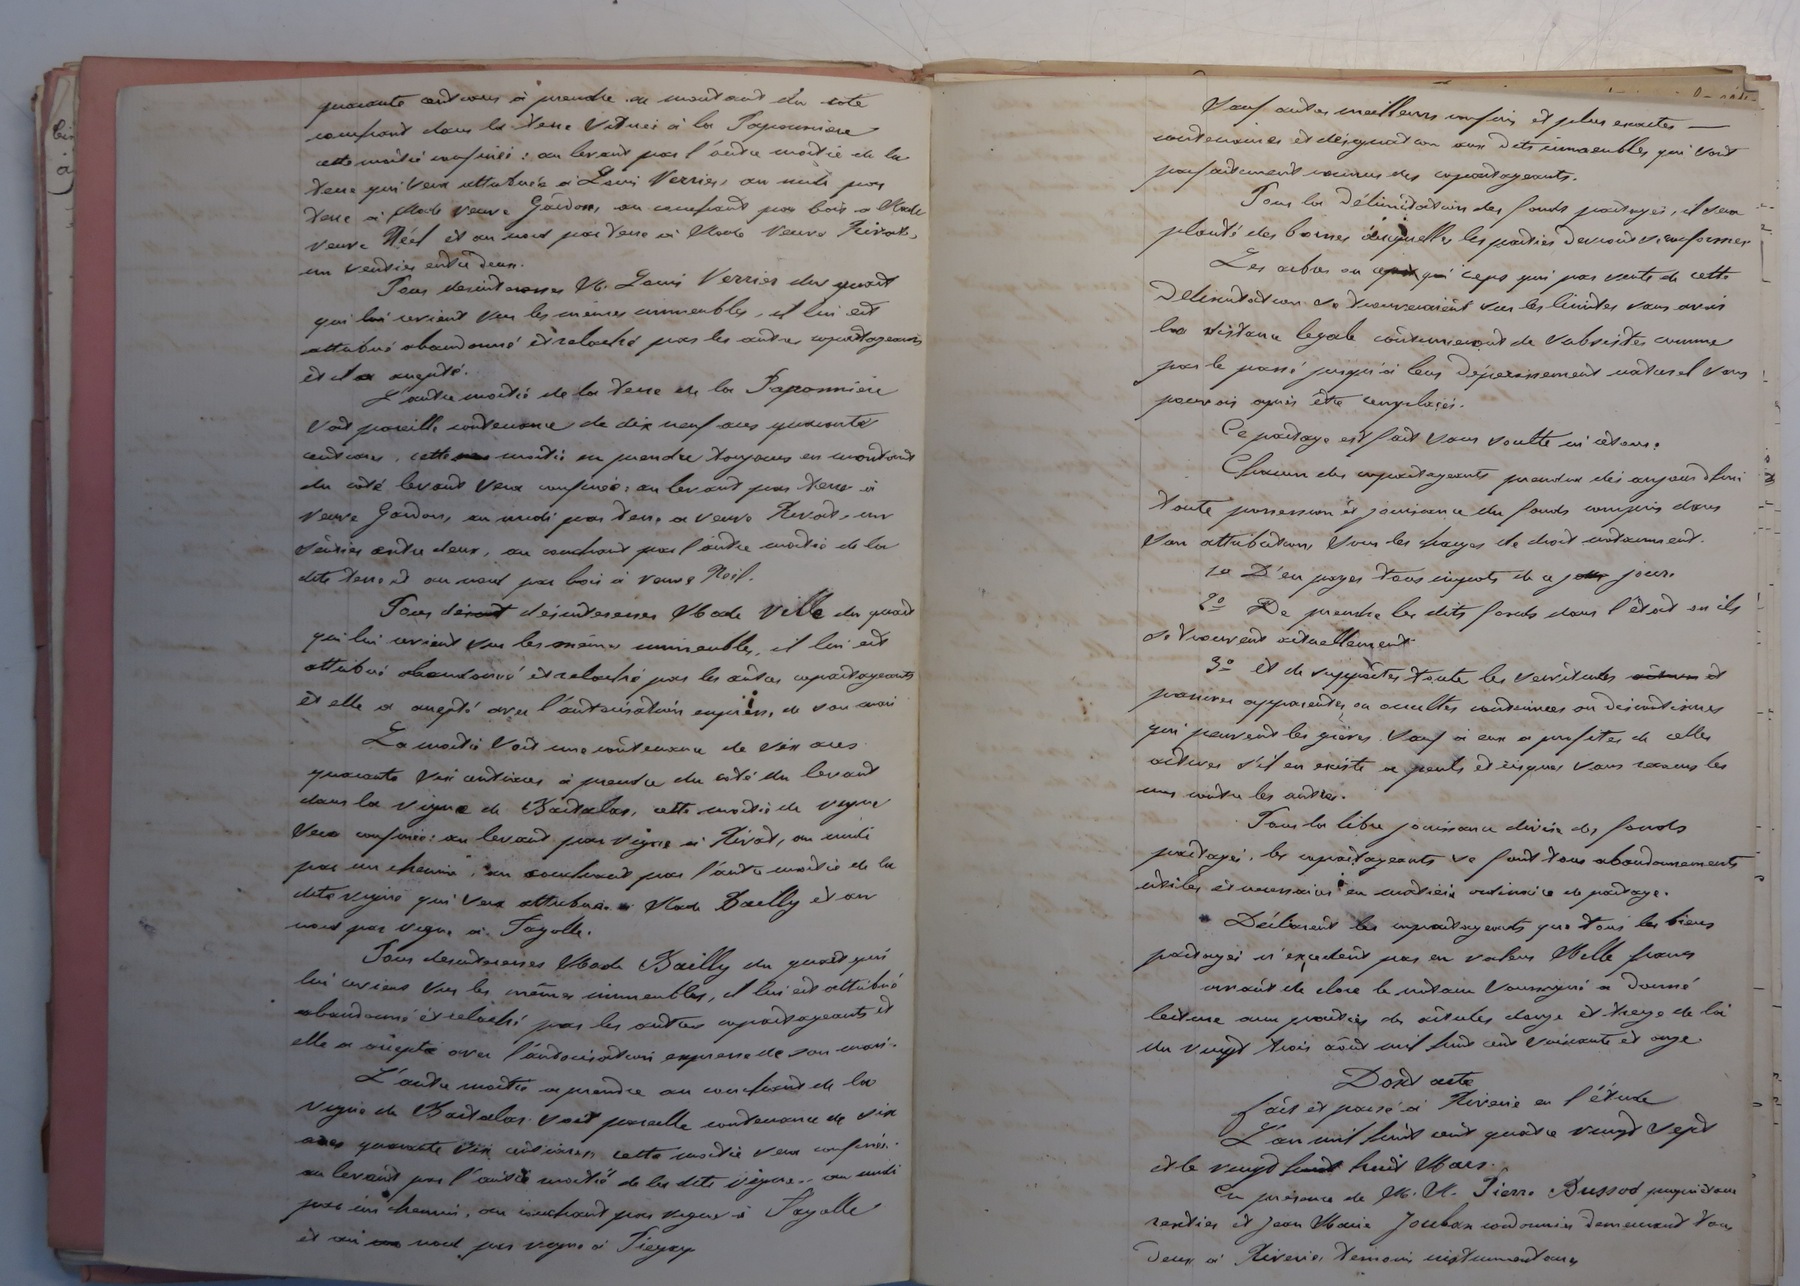 quarante centiares à prendre au montant du coté
couchant dans la terre située à la Paponnière
cette moitié confinée : au levant par l'autre moitié de la
terre qui sera attribuée à Louis Verrier, au midi par
terre à Made veuve Gardon, au couchant par bois a Made
veuve Réel et au nord par terre à Made Veuve Rivat,
un sentier entre deux.
Pour desinteresser M. Louis Verrier du quart
qui lui revient sur les mêmes immeubles, il lui est
attribué abandonné et relaché par les autres copartageants
et il a accepté.
L'autre moitié de la terre de la Paponnière
soit pareille contenance de dix neuf ares quarante
centiares, cette moitié en prendre toujours en montant
du coté levant sera confinée : au levant par terre à
veuve Gardon, au midi par terre a veuve Rivat, un
sentier entre deux, au couchant par l'autre moitié de la
dite terre et au nord par bois à veuve Réel.
Pour désint desinteresser Made Ville du quart
qui lui revient sur les mêmes immeubles, il lui est
attribué abandonné et relaché par les autres copartageants
et elle a accepté avec l'autorisation expresse de son mari
La moitié soit une contenance de six ares
quarante six centiares à prendre du coté du levant
dans la vigne de Bartalas, cette moitié de vigne
sera confinée : au levant par vigne à Rivat, au midi
par un chemin, au couchant par l'autre moitié de la
dite vigne qui sera attribuée à Made Bailly et au
nord par vigne à Fayolle.
Pour desinteresser Made Bailly du quart qui
lui revient sur les mêmes immeubles, il lui est attribué
abandonné et relaché par les autres copartageants et
elle a accepté avec l'autorisation expresse de son mari.
L'autre moitié a prendre au couchant de la
vigne de Bartalas soit pareille contenance de six
ares quarante six centiares, cette moitié sera confinée :
au levant par l'autre moitié de la dite vigne, au midi
par un chemin, au couchant par vigne à Fayolle
et au nord par vigne à Piegay
Sauf autres meilleurs confins et plus exactes
contenances et désignation aux dits immeubles qui sont
parfaitement connus des copartageants.
Pour la délimitation des fonds partagés, il sera
planté des bornes auxquelles les parties devront se conformer
Les arbres ou ceps qui par suite de cette
Délimitation se trouveraient sur les limites sans avoir
la distance légale continueront de subsister comme
par le passé jusqu'à leur dépérissement naturel sans
pouvoir après être remplacés.
Ce partage est fait sans soulte ni retour.
Chacun des copartageants prendra dès aujourd'hui
toute possession et jouissance du fonds compris dans
son attribution, sous les charges de droit notamment.
1o D'en payer tous impots de ce jour.
2o De prendre les dits fonds dans l'état où ils
se trouvent actuellement
3o et de supporter toute les servitudes et
passives apparentes ou occultes continues ou discontinues
qui peuvent les grever sauf à eux a profiter de celles
actives s'il en existe a perils et risques sans recours les
uns contre les autres.
Pour la libre jouissance divise des fonds
partagés, les copartageants se font tous abandonnements
utiles et necessaires en matière ordinaire de partage.
Déclarent les copartageants que tous les biens
partagés n'excedent pas en valeur Mille francs
avant de clore le notaire soussigné a donné
lecture aux parties des articles douze et treize de la loi
du vingt trois août mil huit cent soixante et onze.
Dont acte
fait et passé à Riverie en l'étude
L'an mil huit cent quatre vingt sept
et le vingt huit Mars.
En présence de M. M. Pierre Bussod propriétaire
rentier et Jean Marie Jouban cordonnier demeurant tous
Deux à Riverie, témoins instrumentaires